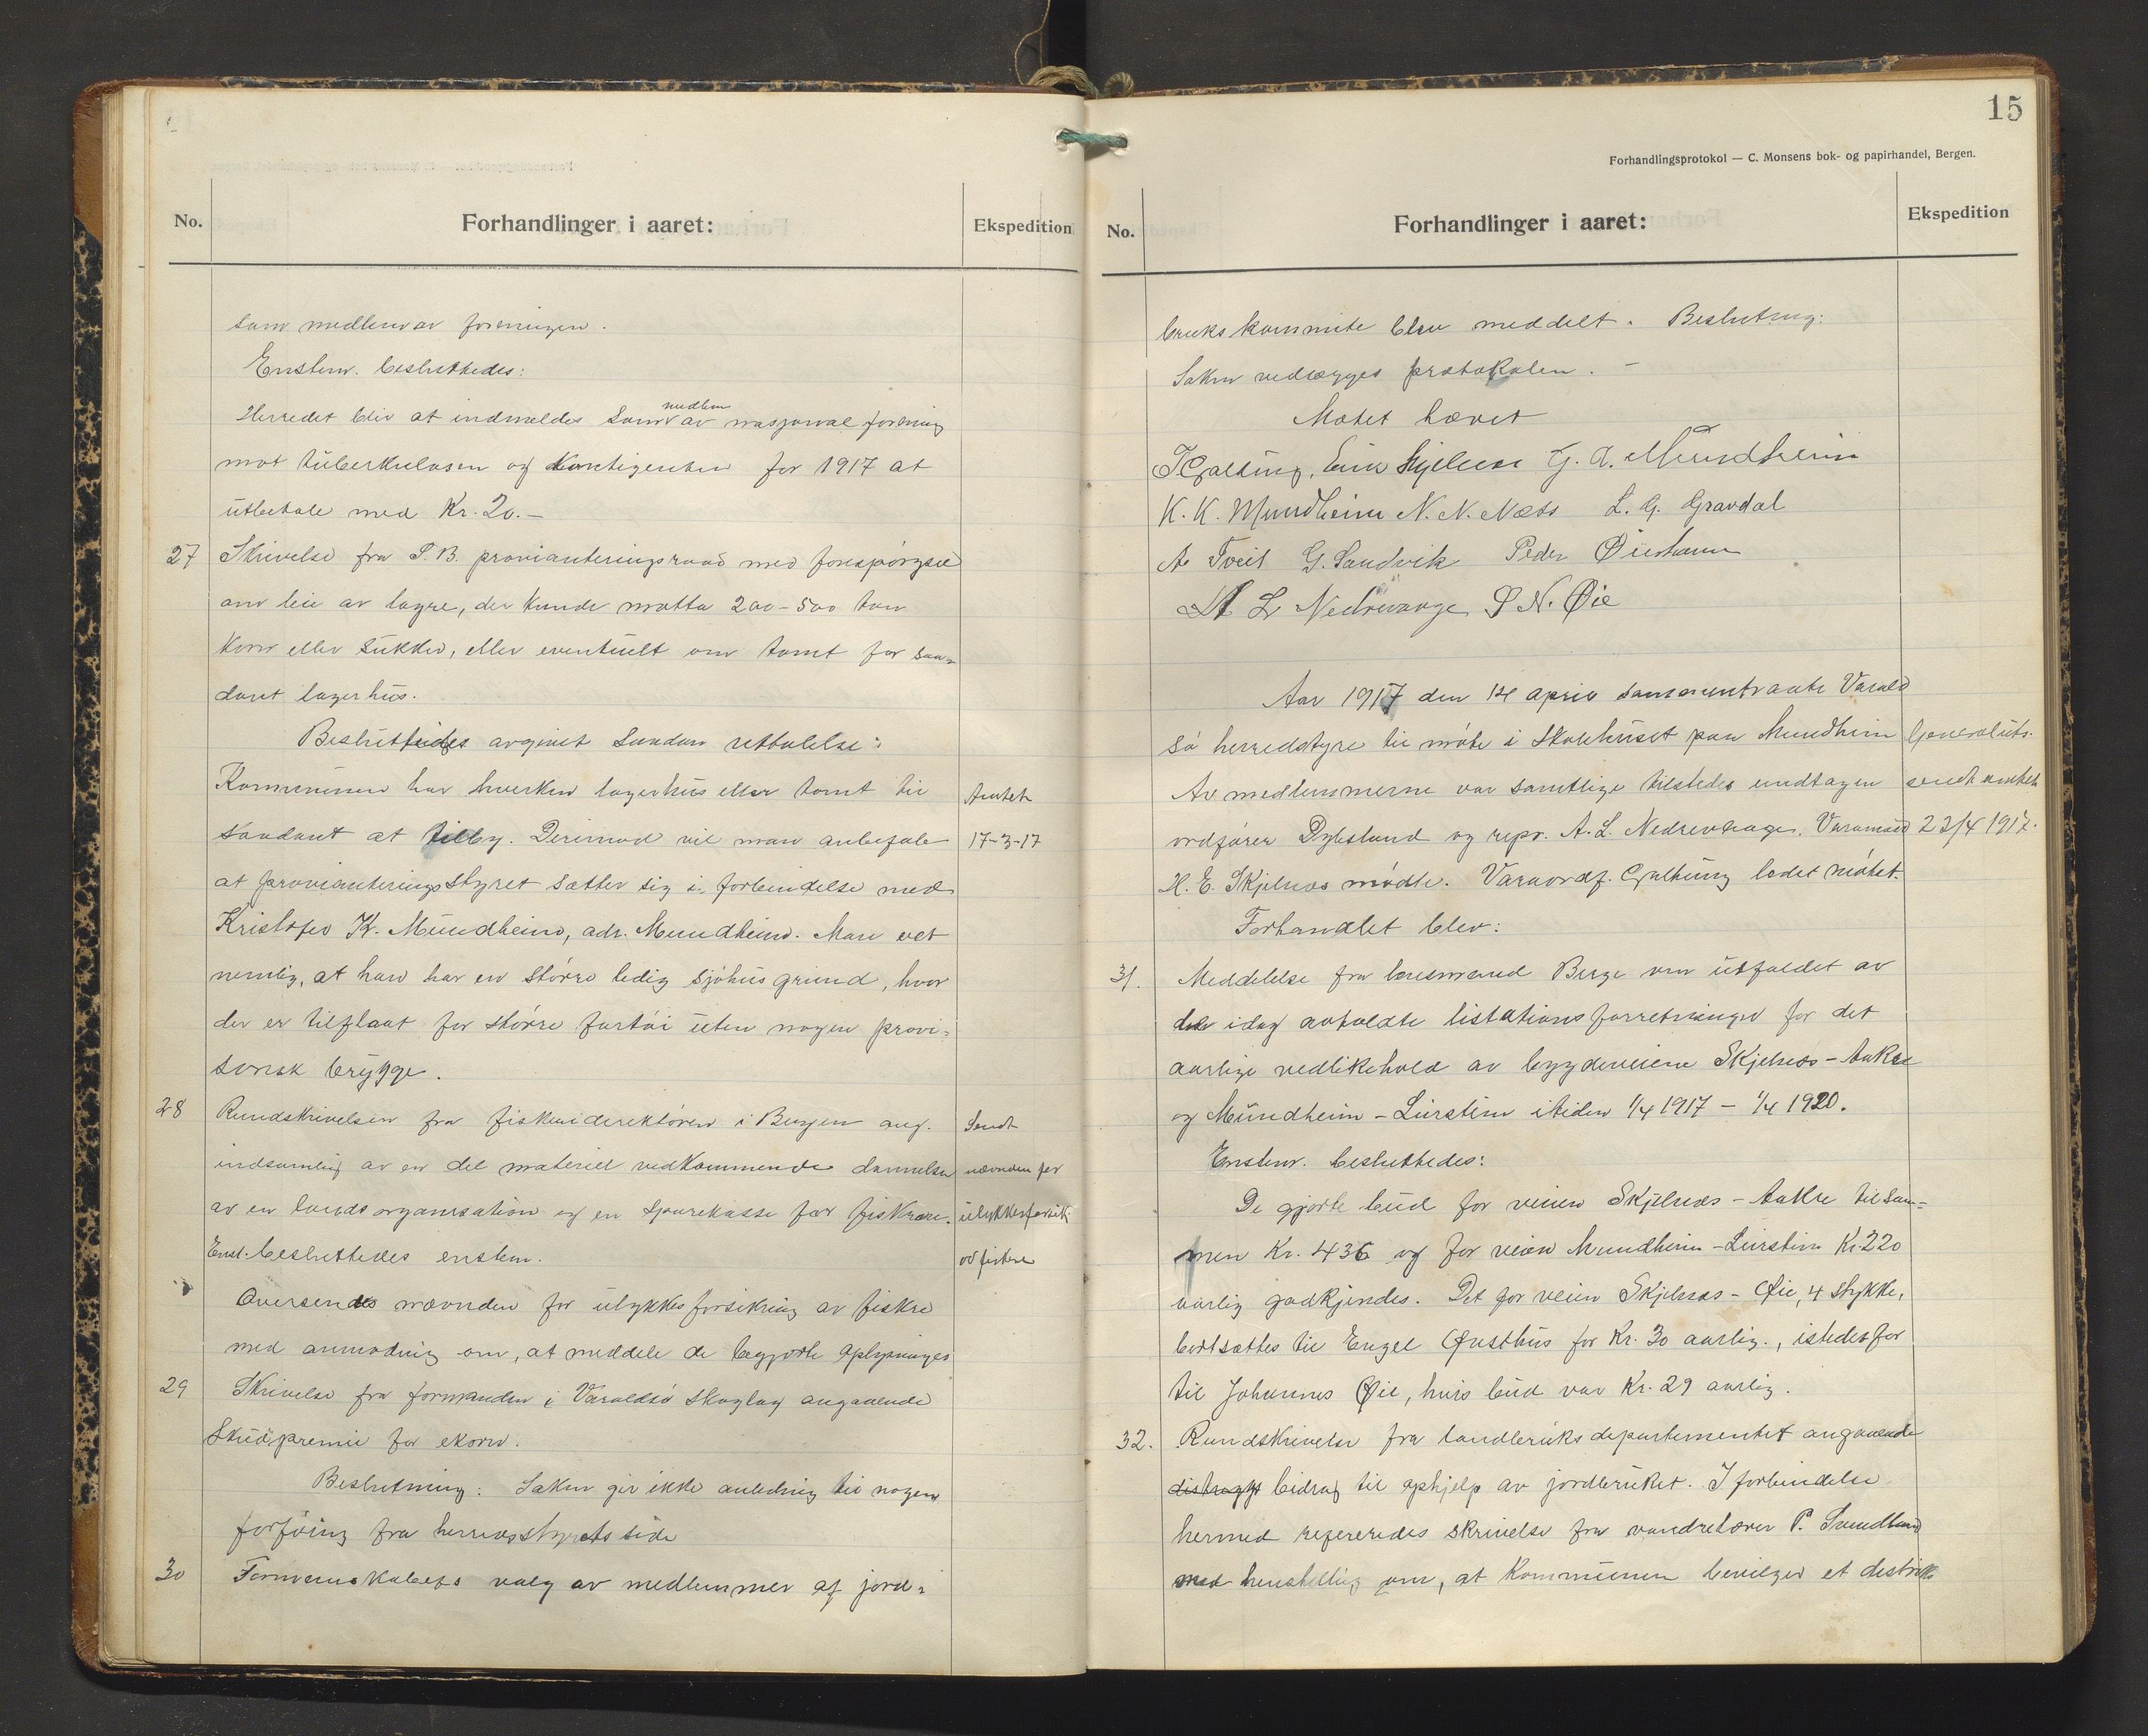 No.
Forhandlinger i aaret:
Ekspedition
som medlem av foreningen.
Enstem. besluttedes:
Herredet blir at indmeldes som medlem av nasjonal forening
mot tuberkulosen og kontigenten for 1917 at
utbetale med Kr. 20.-
27 Skrivelse fra P.B. provianteringsraad med forespørgsel
om leie av lagre, der kunde motta 200-500 ton
korn eller sukker, eller eventuelt om tomt for saa-
dant lagerhus.
Besluttedes avgivet saadan uttalelse:
Kommunen har hverken lagerhus eller tomt til
saadant at tilby. Derimod vil man anbefale
at provianteringsstyret sætter sig i forbindelse med
Kristofer K. Mundheim, adr. Mundheim. Man vet
nemlig, at han har en større ledig sjøhusgrund, hvor
der er tilflaat for større fartøi uten nogen provi-
sorisk brygge.
Amtet
17-3-17
28 Rundskrivelsen fra fiskeridirektøren i Bergen ang.
indsamling av en del materiel vedkommende dannelse
av en landsorganisation og en sparekasse for fiskere.
Enst. besluttedes enstem.
Oversendes nævnden for ulykkesforsikring av fiskere
med anmodning om, at meddele de begjærte oplysninger
Sendt
nævnden for
ulykkesforsik
av fiskere
29 Skrivelse fra formanden i Varaldsø skoglag angaaende
Skudpremie for ekorn.
Beslutning: Saken gir ikke anledning til nogen
forføing fra herredsstyrets side
30 Formannskabets valg av medlemmer af jord-
15
Forhandlingsprotokol — C. Monsens bok- og papirhandel, Bergen.
No.
Forhandlinger i aaret:
Ekspedition
bruks kommite blev meddelt. Beslutning:
Saken vedlægges protokolen. -
Møtet hævet
G. A. Mundheim
K. K. Mundheim N. N. Næss L. G. Gravdal
A Tveit G. Sandvik Peder Øiesthamn
A L Nedrevaage S N. Øie
Aar 1917 den 14 april sammentraate Varald
sø herredstyre til møte i Skolehuset paa Mundheim
Av medlemmerne var samtlige tilstedes undtagen
ordfører Dybsland og repr. A. L. Nedrevaage. Varamand
H. E. Skjelnæs mødte. Varaordf. Galtung ledet møtet.
Generaluts.
sendt amtet
23/4 1917.
Forhandlet blev:
31. Meddelelse fra lensmand Berge om utfaldet av
idag avholdte lisitationsforretninger for det
aarlige vedlikehold av bygdeveiene Skjelnæs - Aakre
og Mundheim - Lurstien i tiden 1/4 1917 - 1/4 1920.
Enstem. besluttedes:
De gjorte bud for veien Skjelnæs - Aakre tilsam-
men Kr. 436 og for veien Mundheim - Lurstien Kr. 220
aarlig godkjendes. Det for veien Skjelnæs - Øie, 4 stykke,
bortsættes til Engel Øusthus for Kr. 30 aarlig., istedenfor
til Johannes Øie, hvis bud var Kr. 29 aarlig.
32. Rundskrivelse fra landbruksdepartementet angaaende
bidrag til ophjelp av jordbruket. I forbindelse
hermed refereredes skrivelse fra vandrelærer P. Sundland
med henstilling om, at kommunen bevilger et distrikts